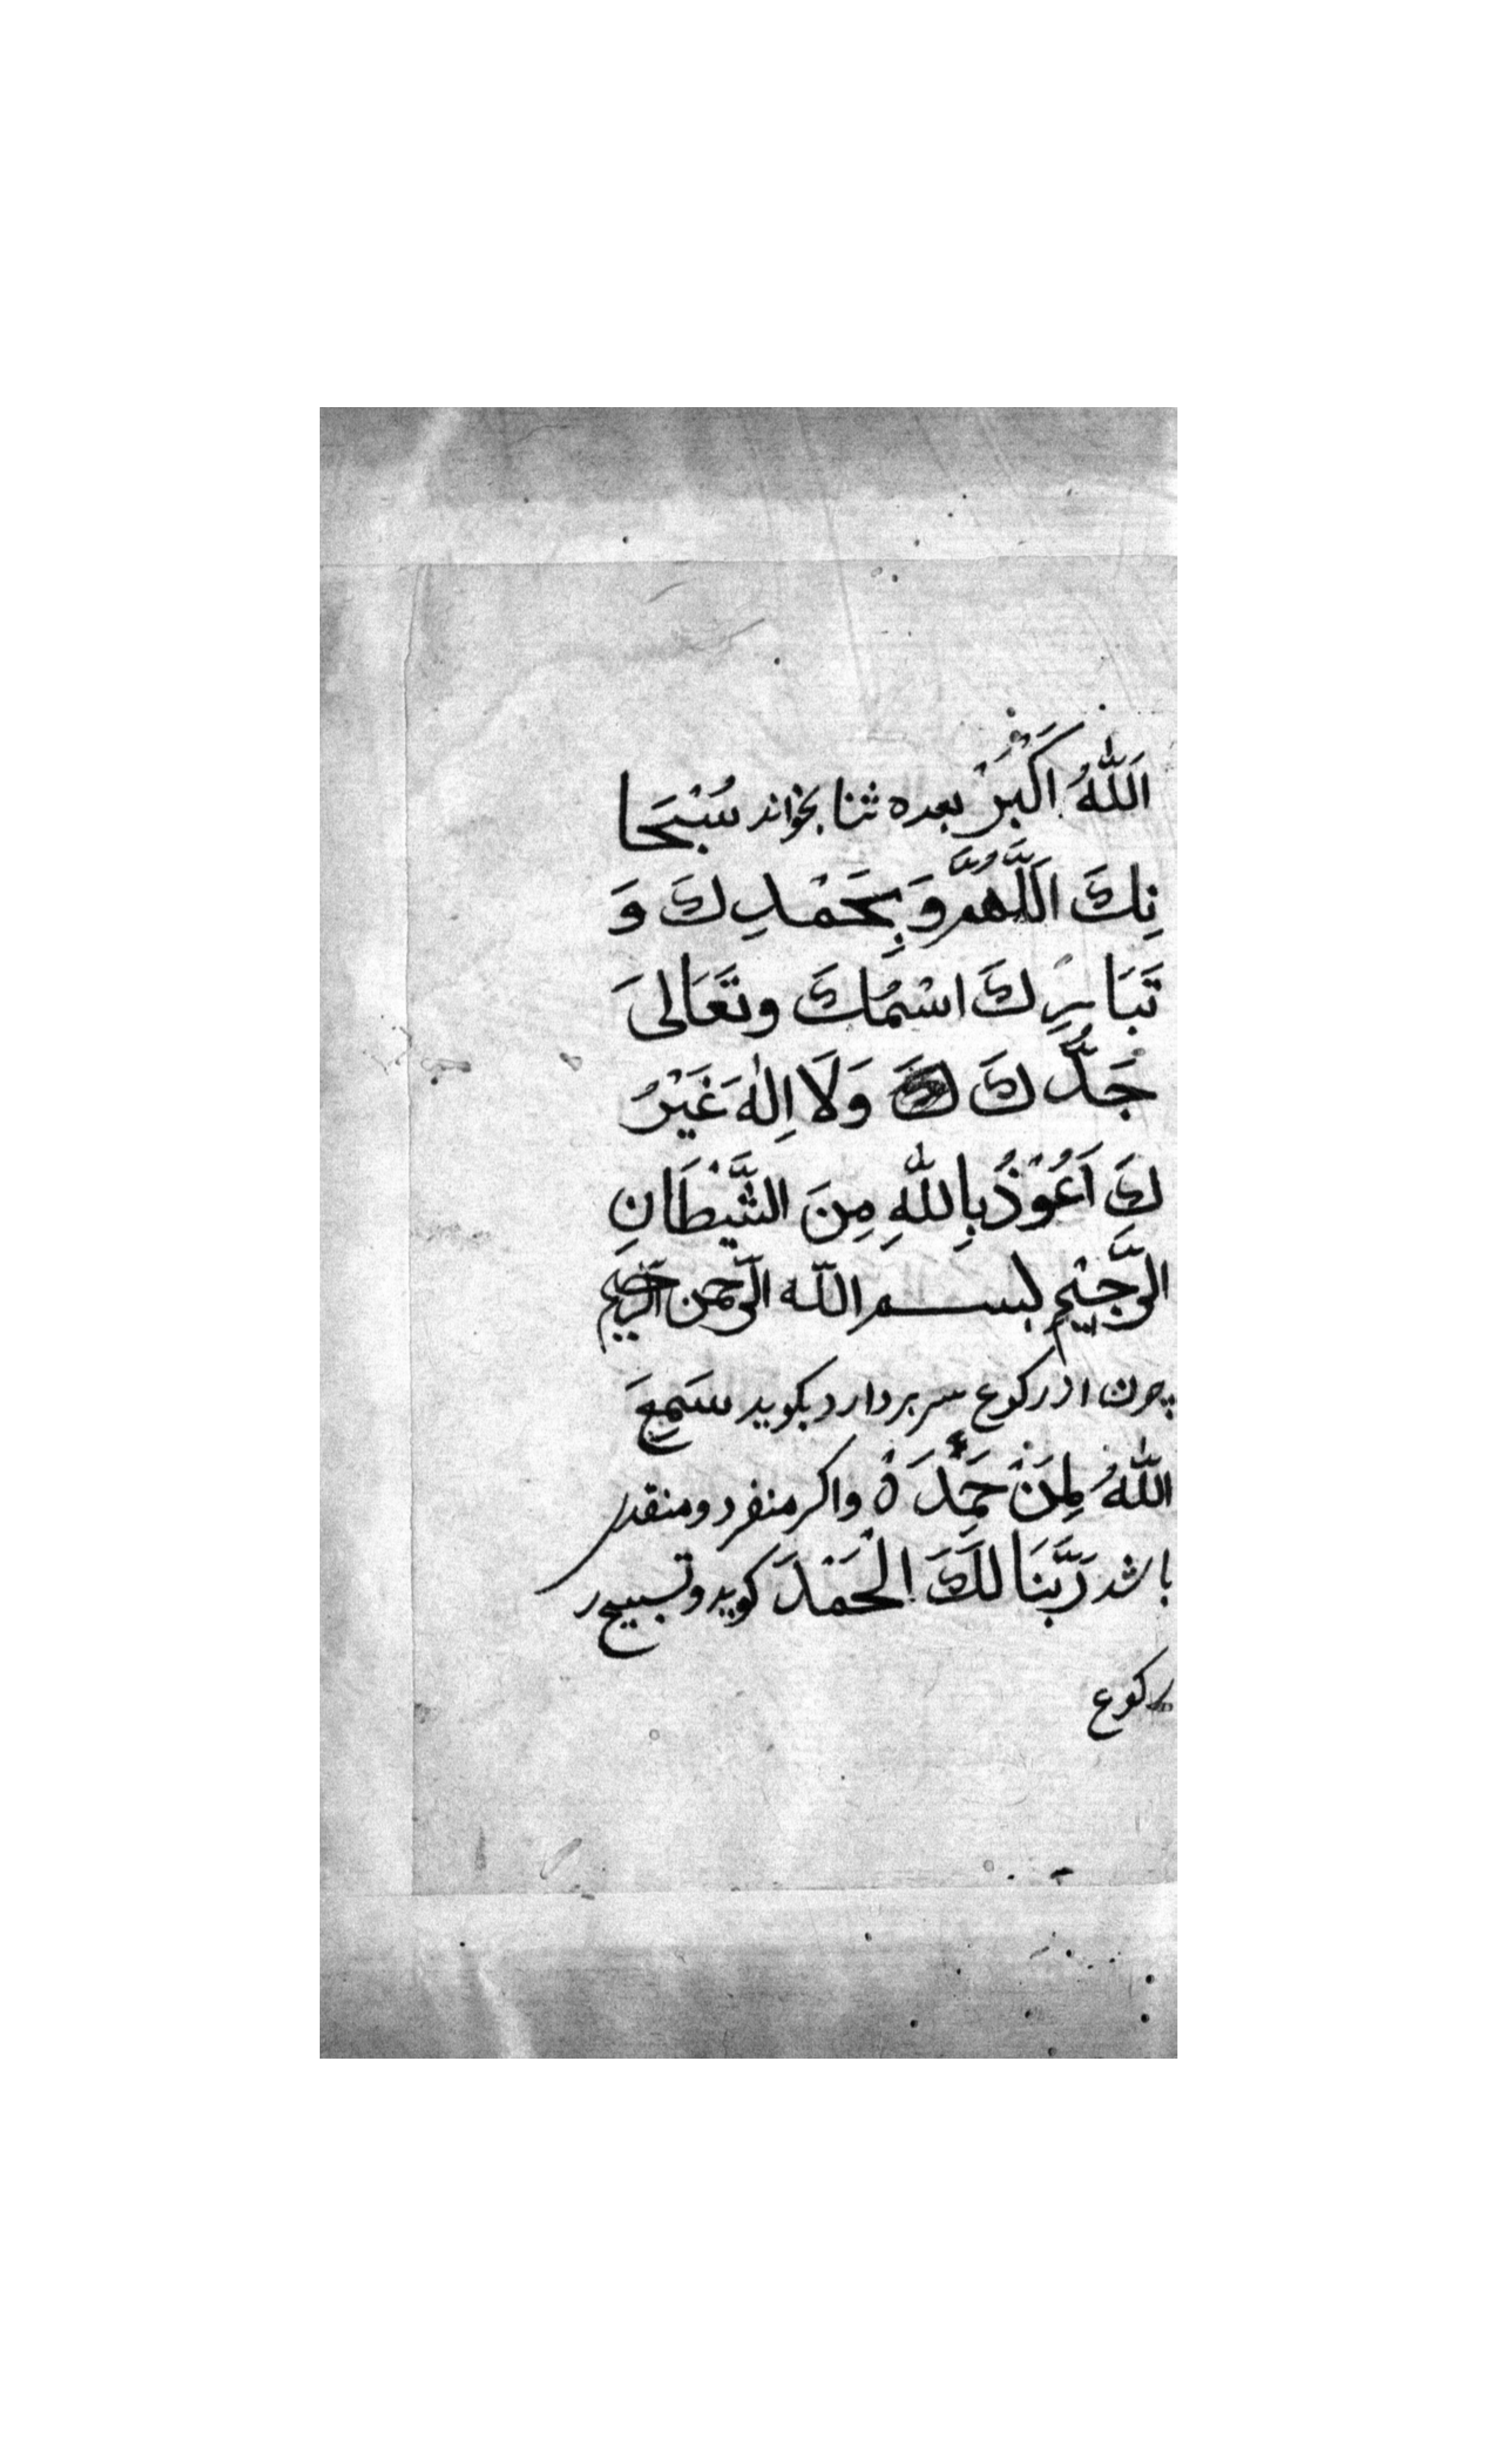 اَللّٰهُ اَكْبَرْ بعده ثنا بخواند سُبْحَا
نِكَ اَللَّهُمَّ وَبِحَمْدِكَ وَ
تَبَارِكَ اسْمُكَ وتَعَالىَ
جَدُّكَ وَلَا اِلٰهَ غَيْرُ
كَ اَعُوْذُ بِاللّٰهِ مِنَ الشَّيْطَانِ
الرَّجِيْمِ بسم اللّه الرّحمن الرّحيم
چون از ركوع سر بردارد بكويد سَمِعَ
اللّٰهُ لِمَنْ حَمِدَهْ واكر منفرد ومنقدر
باشد رَبَّنَا لَكَ الْحَمْدَ كويد وتسبيح ر
كوع